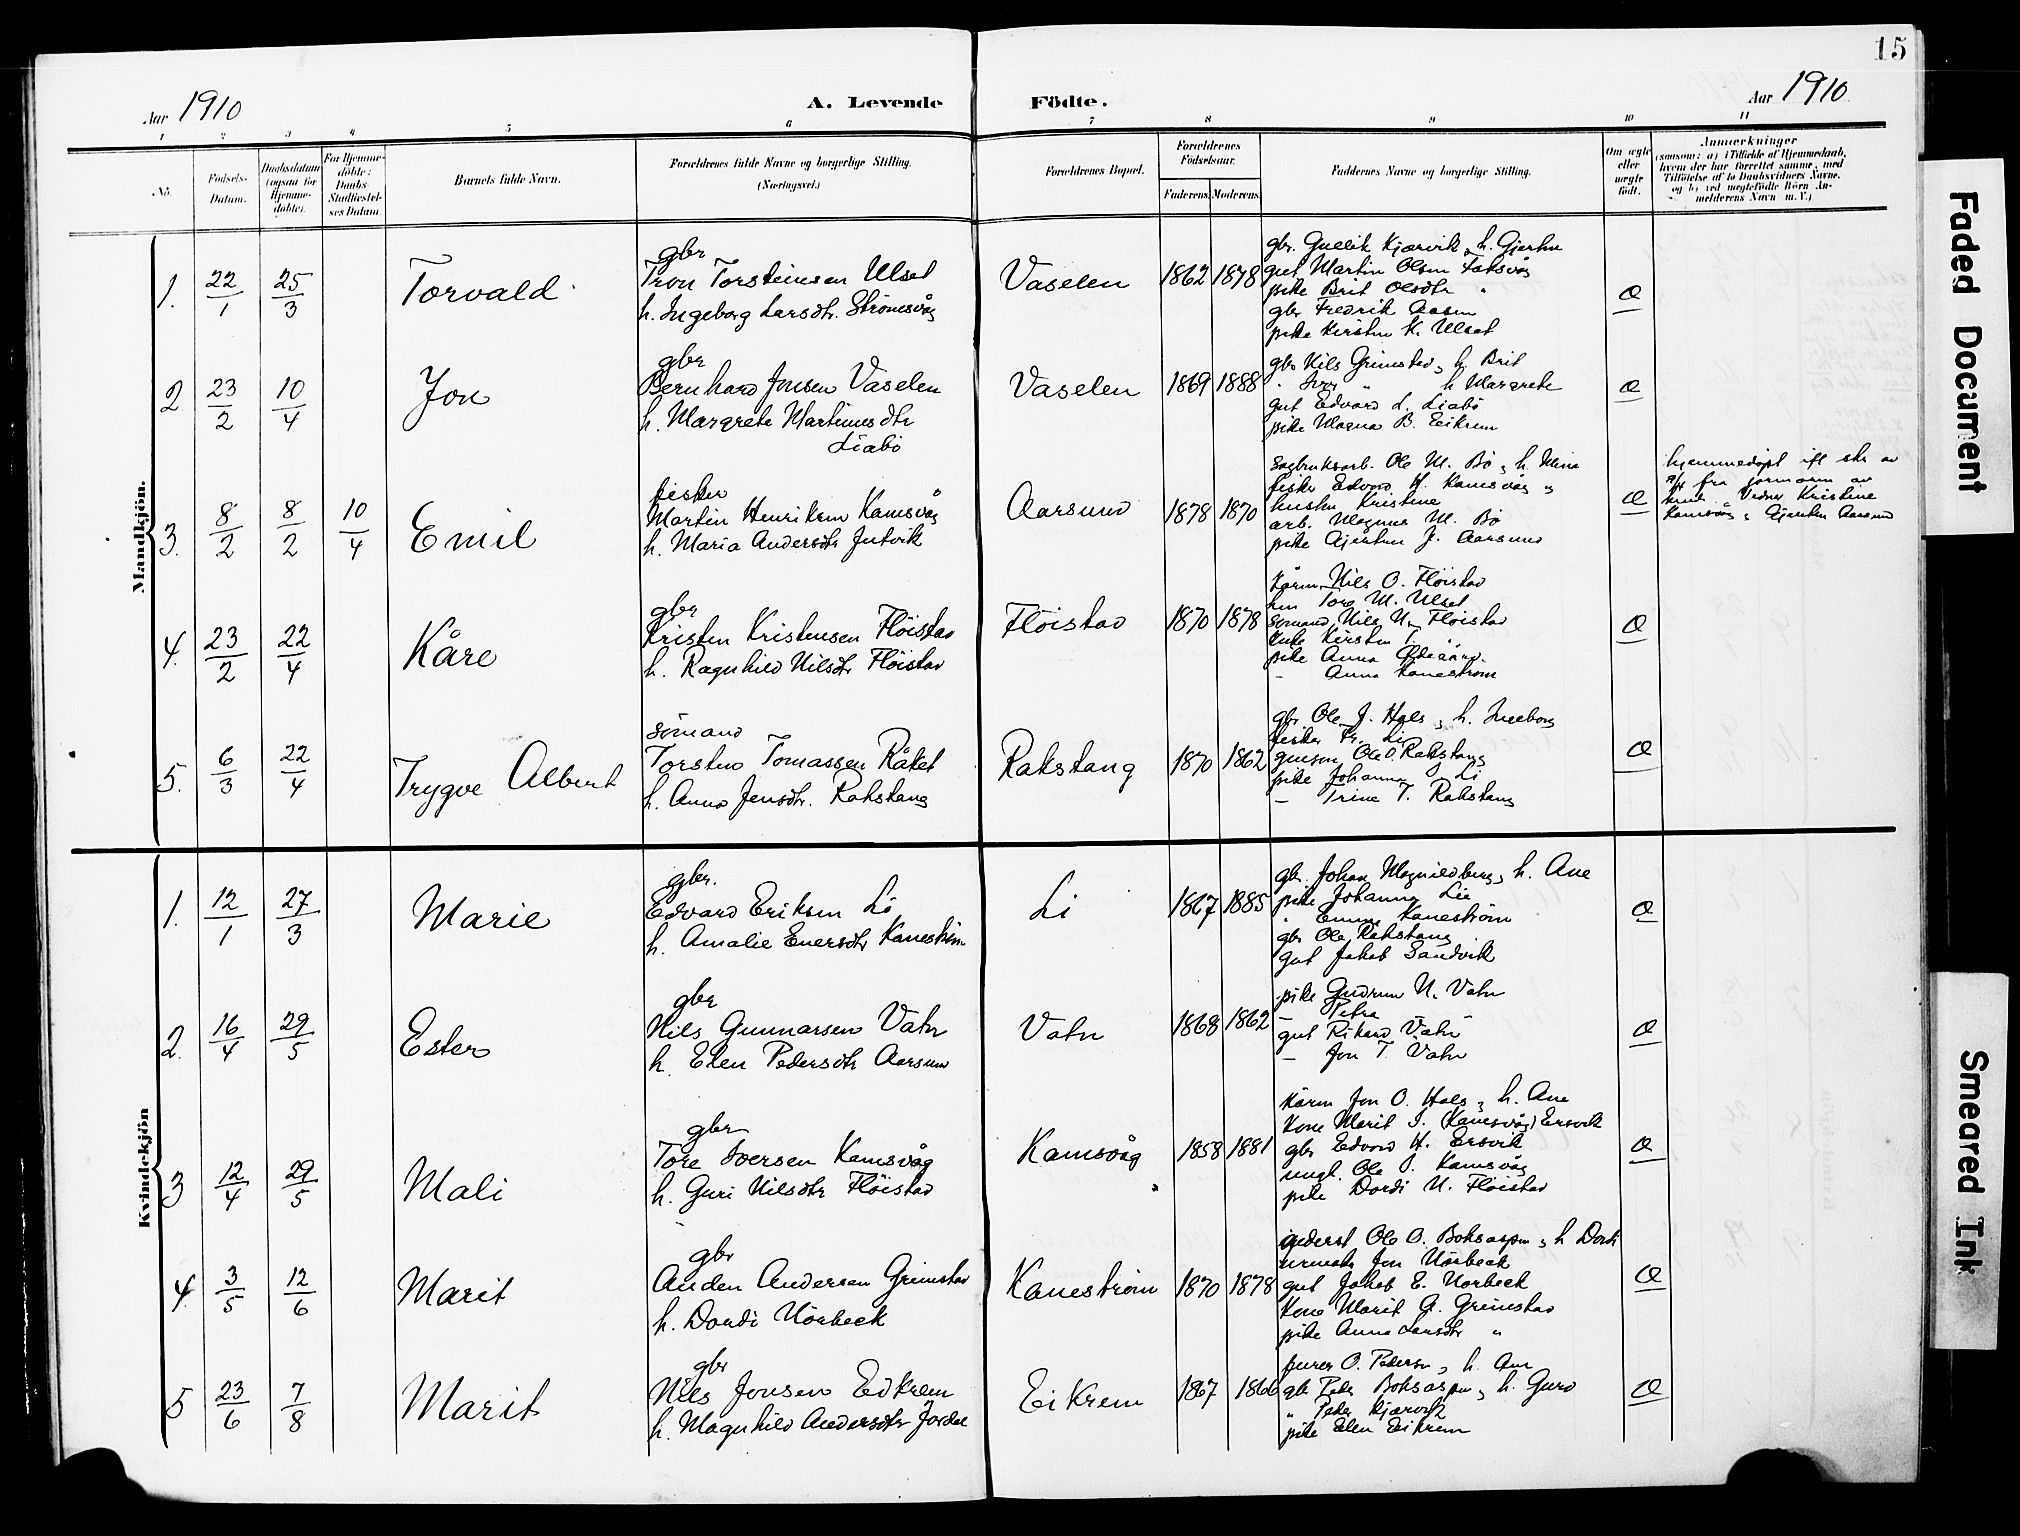 15
Aar 1910
A. Levende Födte.
Aar 1910.
1 2 3 4 5 6 7 8 9 10 11
No.
Födsels-
Datum.
Daabsdatum
(ogsaa for
Hjemme-
döbte).
For Hjemme-
döbte:
Daabs-
Stadfæstel-
ses Datum.
Barnets fulde Navn.
Forældrenes fulde Navne og borgerlige Stilling.
(Næringsvei.)
Forældrenes Bopæl.
Forældrenes
Födselsaar.
Faderens. Moderens.
Faddernes Navne og borgerlige Stilling.
Om ægte
eller
uægte
født.
Anmærkninger
(saasom: a) i Tilfælde af Hjemmedaab,
hvem der har forrettet samme, med
Tilföielse af to Daabsvidners Navne.
og b) ved uægtefödte Börn An-
melderens Navn m. V.)
Mandkjön.
1. 22/1 25/3 Torvald
gbr
Tron Torsteinsen Ulset
h. Ingeborg Larsdtr. Strömsvåg
Vaselen 1862 1878
gbr. Gullik Kjørvik, h. Gjertru
gut Martin Olsen
pike Brit Olsdtr "
gbr Fredrik Aasen
pike Kirsten K. Ulset
Æ
2 23/2 10/4 Jon
gbr
Bernhard Jonsen Vaselen
h. Margrete Martinusdtr
Liabö
Vaselen 1869 1888
gbr Nils Grimstad, h. Brit
" Iver " h Margrete
gut Edvard L. Liabö
pike Magna B. Eikrem
Æ
3. 8/2 8/2 10/4 Emil
fisker
Martin Henriksen Kamsvåg
h. Maria Andersdtr Jutvik
Aarsund 1878 1870
Sagbruksarb. Ole M. Bö, h. Mina
fisker Edvard H. Kamsvåg
hustru Kristine
arb. Magnus M. Bö
pike Gjertru J. Aarsund
Æ
hjemmedöpt ift skr av
fra jormorm av
Vidner Kristine
Kamsvåg, Gjertru Aarsund
4. 23/2 22/4 Kåre
gbr
Kristen Kristensen Flöistad
h. Ragnhild Nilsdtr Flöistad
Flöistad 1870 1878
Kårm. Nils O. Flöistad
Tore M. Ulset
sömand Nils N. Flöistad
Kirsten T. "
pike Anna Ödegård
- Anna Kaneström
Æ
5. 6/3 22/4 Trygve Albert
sömand
Torsten Tomassen Råket
h. Anna Jensdtr. Rakstang
Rakstang 1870 1862
gbr Ole J. Hals, h. Ingeborg
fisker Li
Ole O. Rakstang
pike Johanna Li
- Trine T. Rakstang
Æ
Kvindekjön
1. 12/1 27/3 Marie
gbr.
Edvard Eriksen Li
h. Amalie Enersdtr Kaneström
Li 1867 1885
gbr. Johan Magnildberg, h. Ane
pike Johanna Lie
" Emma Kaneström
gbr Ole Rakstang
gut Jakob Sandvik
Æ
2. 16/4 29/5 Ester
gbr
Nils Gunnarsen Vatn
h. Elen Pedersdtr Aarsund
Vatn 1868 1862
pike Gudrun N. Vatn
- Petra "
gut Rikard Vatn
- Jon T. Vatn
Æ
3 12/4 29/5 Mali
gbr
Tore Iversen Kamsvåg
h. Guri Nilsdtr Flöistad
Kamsvåg 1858 1881
Kårm Jon O. Hals, h. Ane
Kone Marit I. (Kamsvåg) Ersvik
gbr Edvard H. Ersvik
ungk. Ole I. Kamsvåg
pike Dordi N. Flöistad
Æ
4. 3/5 12/6 Marit
gbr
Anden Andersen Grimstad
h. Dordi Nörbeck
Kaneström 1870 1878
inderst Ole O. Boksaspen, h Dordi
urmak. Jon Nörbeck
gut Jakob E. Norbeck
Kone Marit A. Grimstad
pike Anna Larsdtr "
Æ
5 23/6 7/8 Marit
gbr
Nils Jonsen Eikrem
h. Magnhild Andersdtr Jordal
Eikrem 1867 1866
O. Pedersen, h. Ane
gbr Peder Boksaspen, h. Guro
" Peder Kjørvik
pike Elen Eikrem
Æ
Faded Document
Smeared Ink